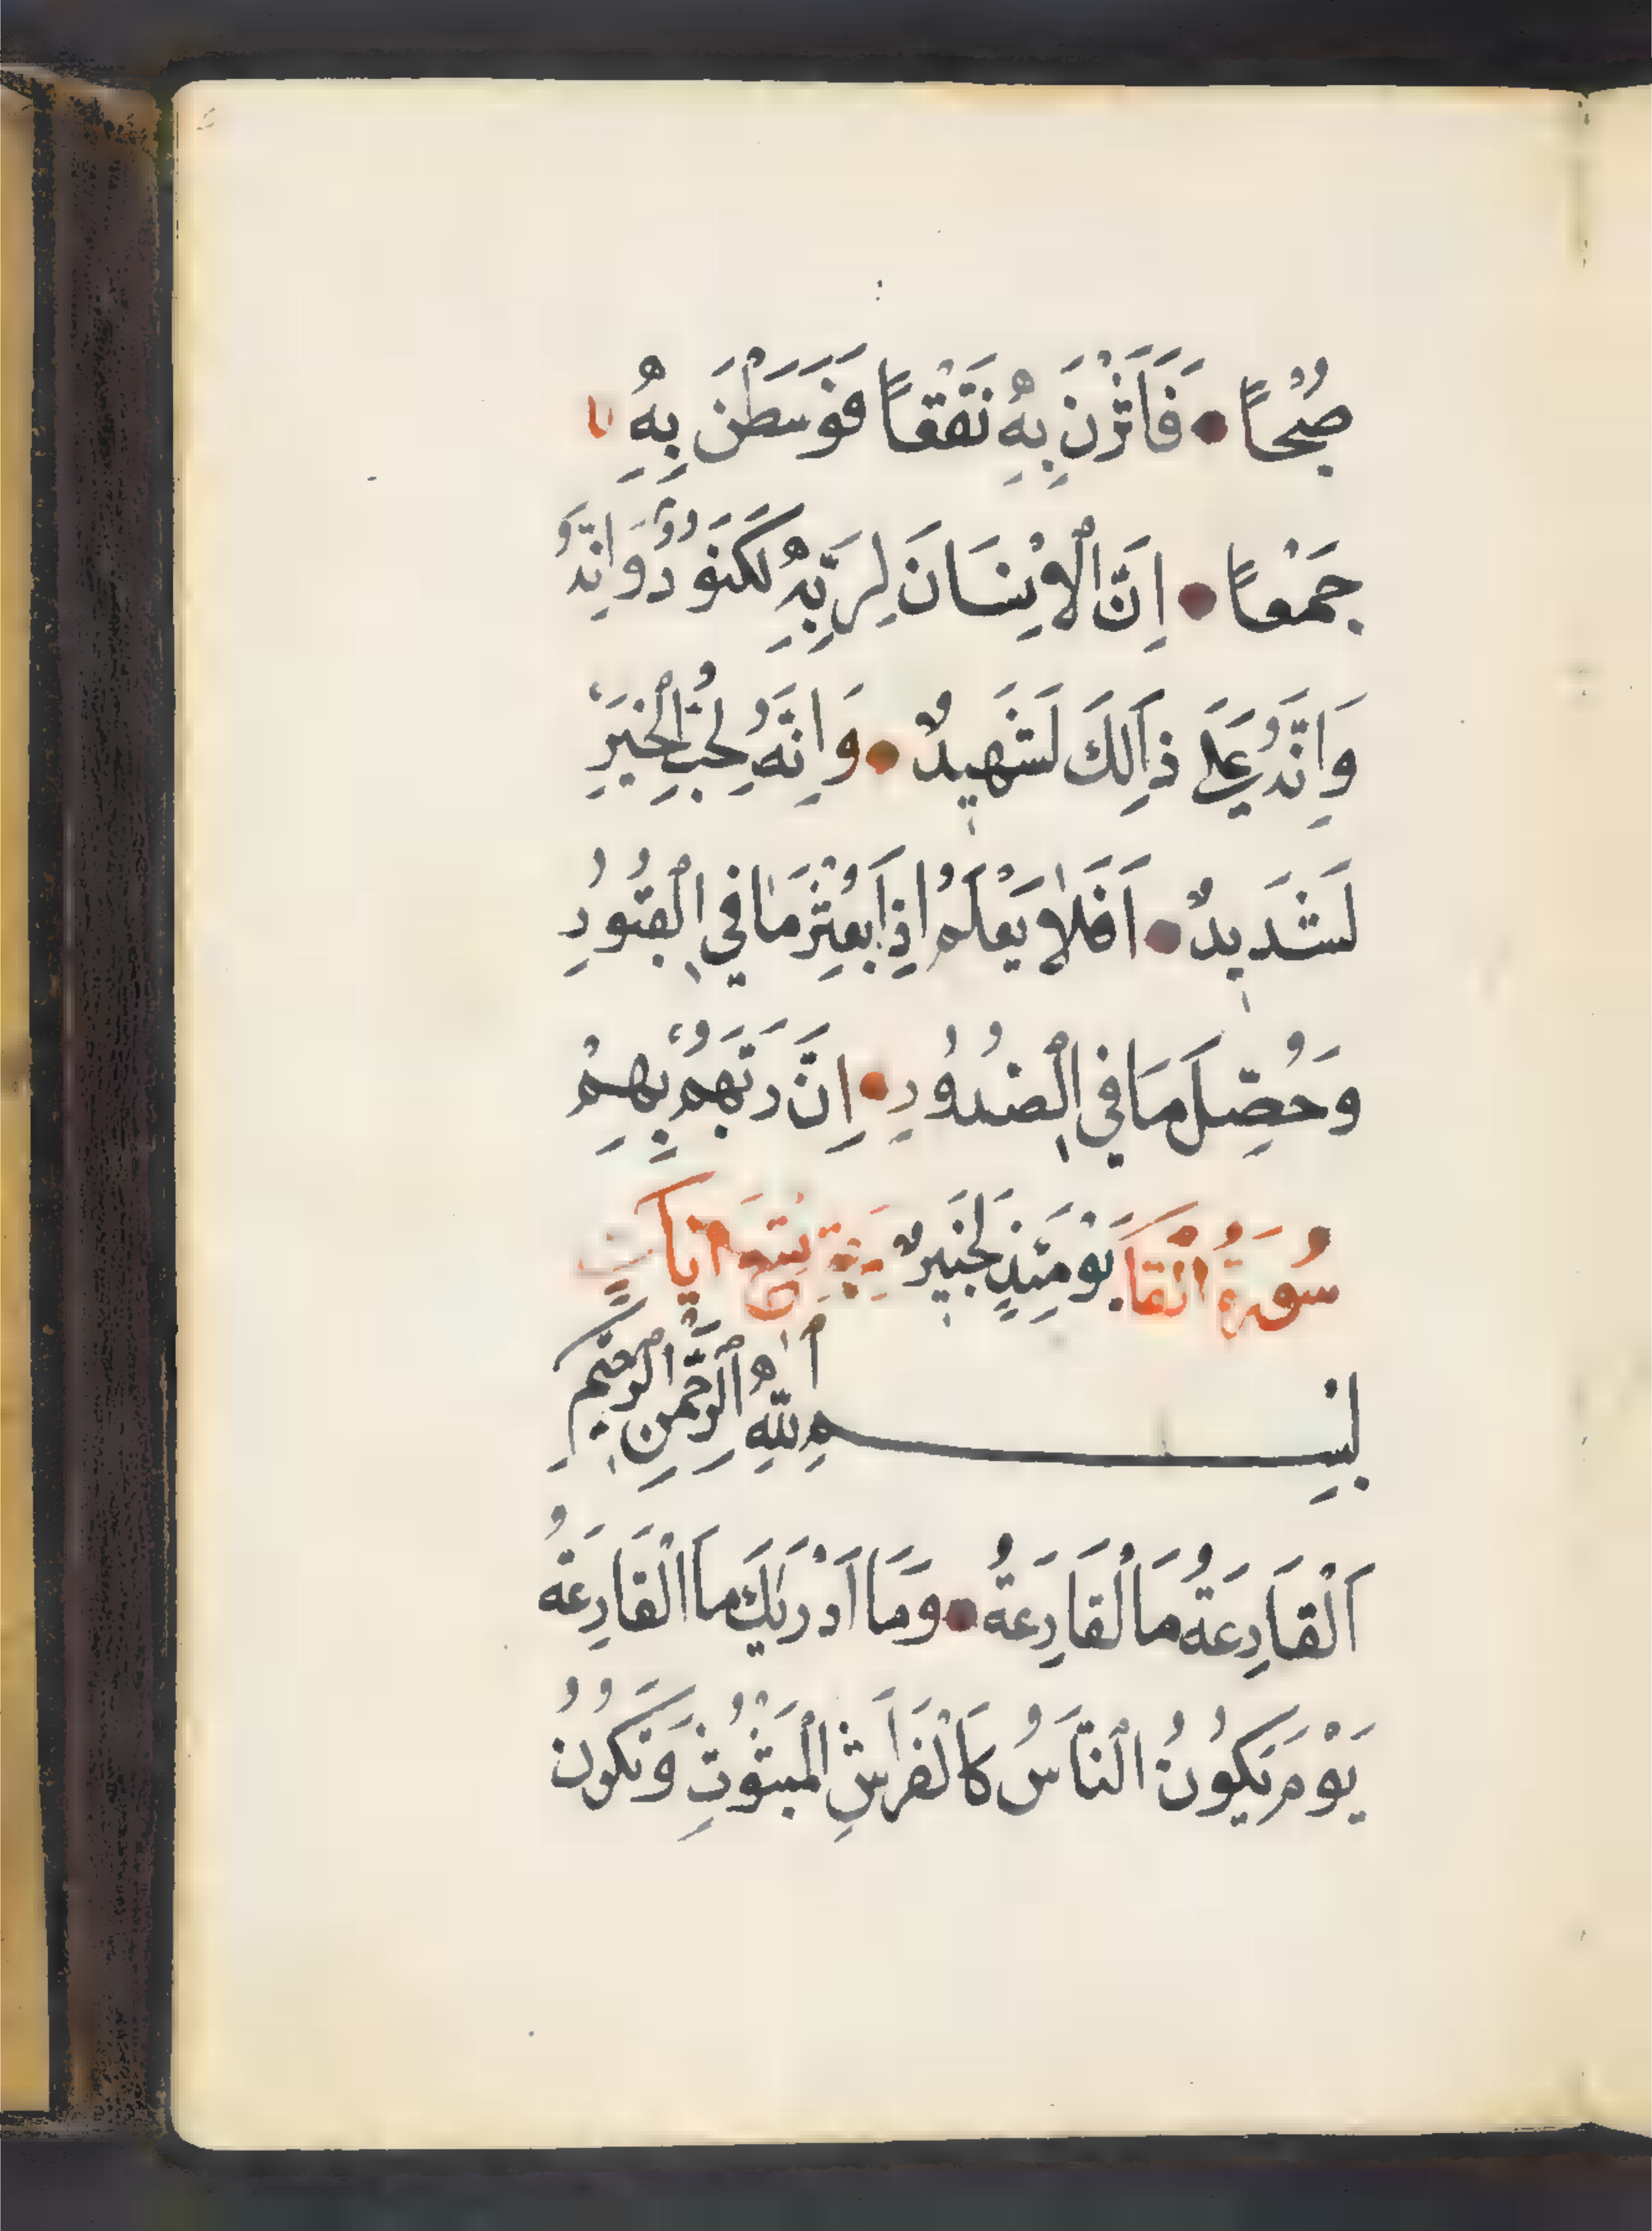 صُبْحاً فَاَثَرْنَ بِهِ نَقْعاً فَوَسَطْنَ بِهِ
جَمْعاً اِنَّ الْاِنْسَانَ لِرَبِّهِ لَكَنُودٌ وَاِنَّهُ
وَاِنَّهُ عَلَى ذَالِكَ لَشَهِيدٌ وَاِنَّهُ لِحُبِّ الْخَيْرِ
لَشَدِيدٌ اَفَلَا يَعْلَمُ اِذَا بُعْثِرَ مَا فِي الْقُبُورِ
وَحُصِّلَ مَا فِي الصُّدُورِ اِنَّ رَبَّهُمْ بِهِمْ
سُورَةُ الْقَا يَوْمَئِذٍ لَخَبِيرٌ تِسْعَ اٰيَاتٍ
بِسْمِ اللّٰهِ الرَّحْمٰنِ الرَّحِيمِ
اَلْقَارِعَةُ مَا لْقَارِعَةُ وَمَا اَدْرٰيكَ مَا الْقَارِعَةُ
يَوْمَ يَكُونُ النَّاسُ كَالْفَرَاشِ الْمَبْثُوثِ وَتَكُونُ